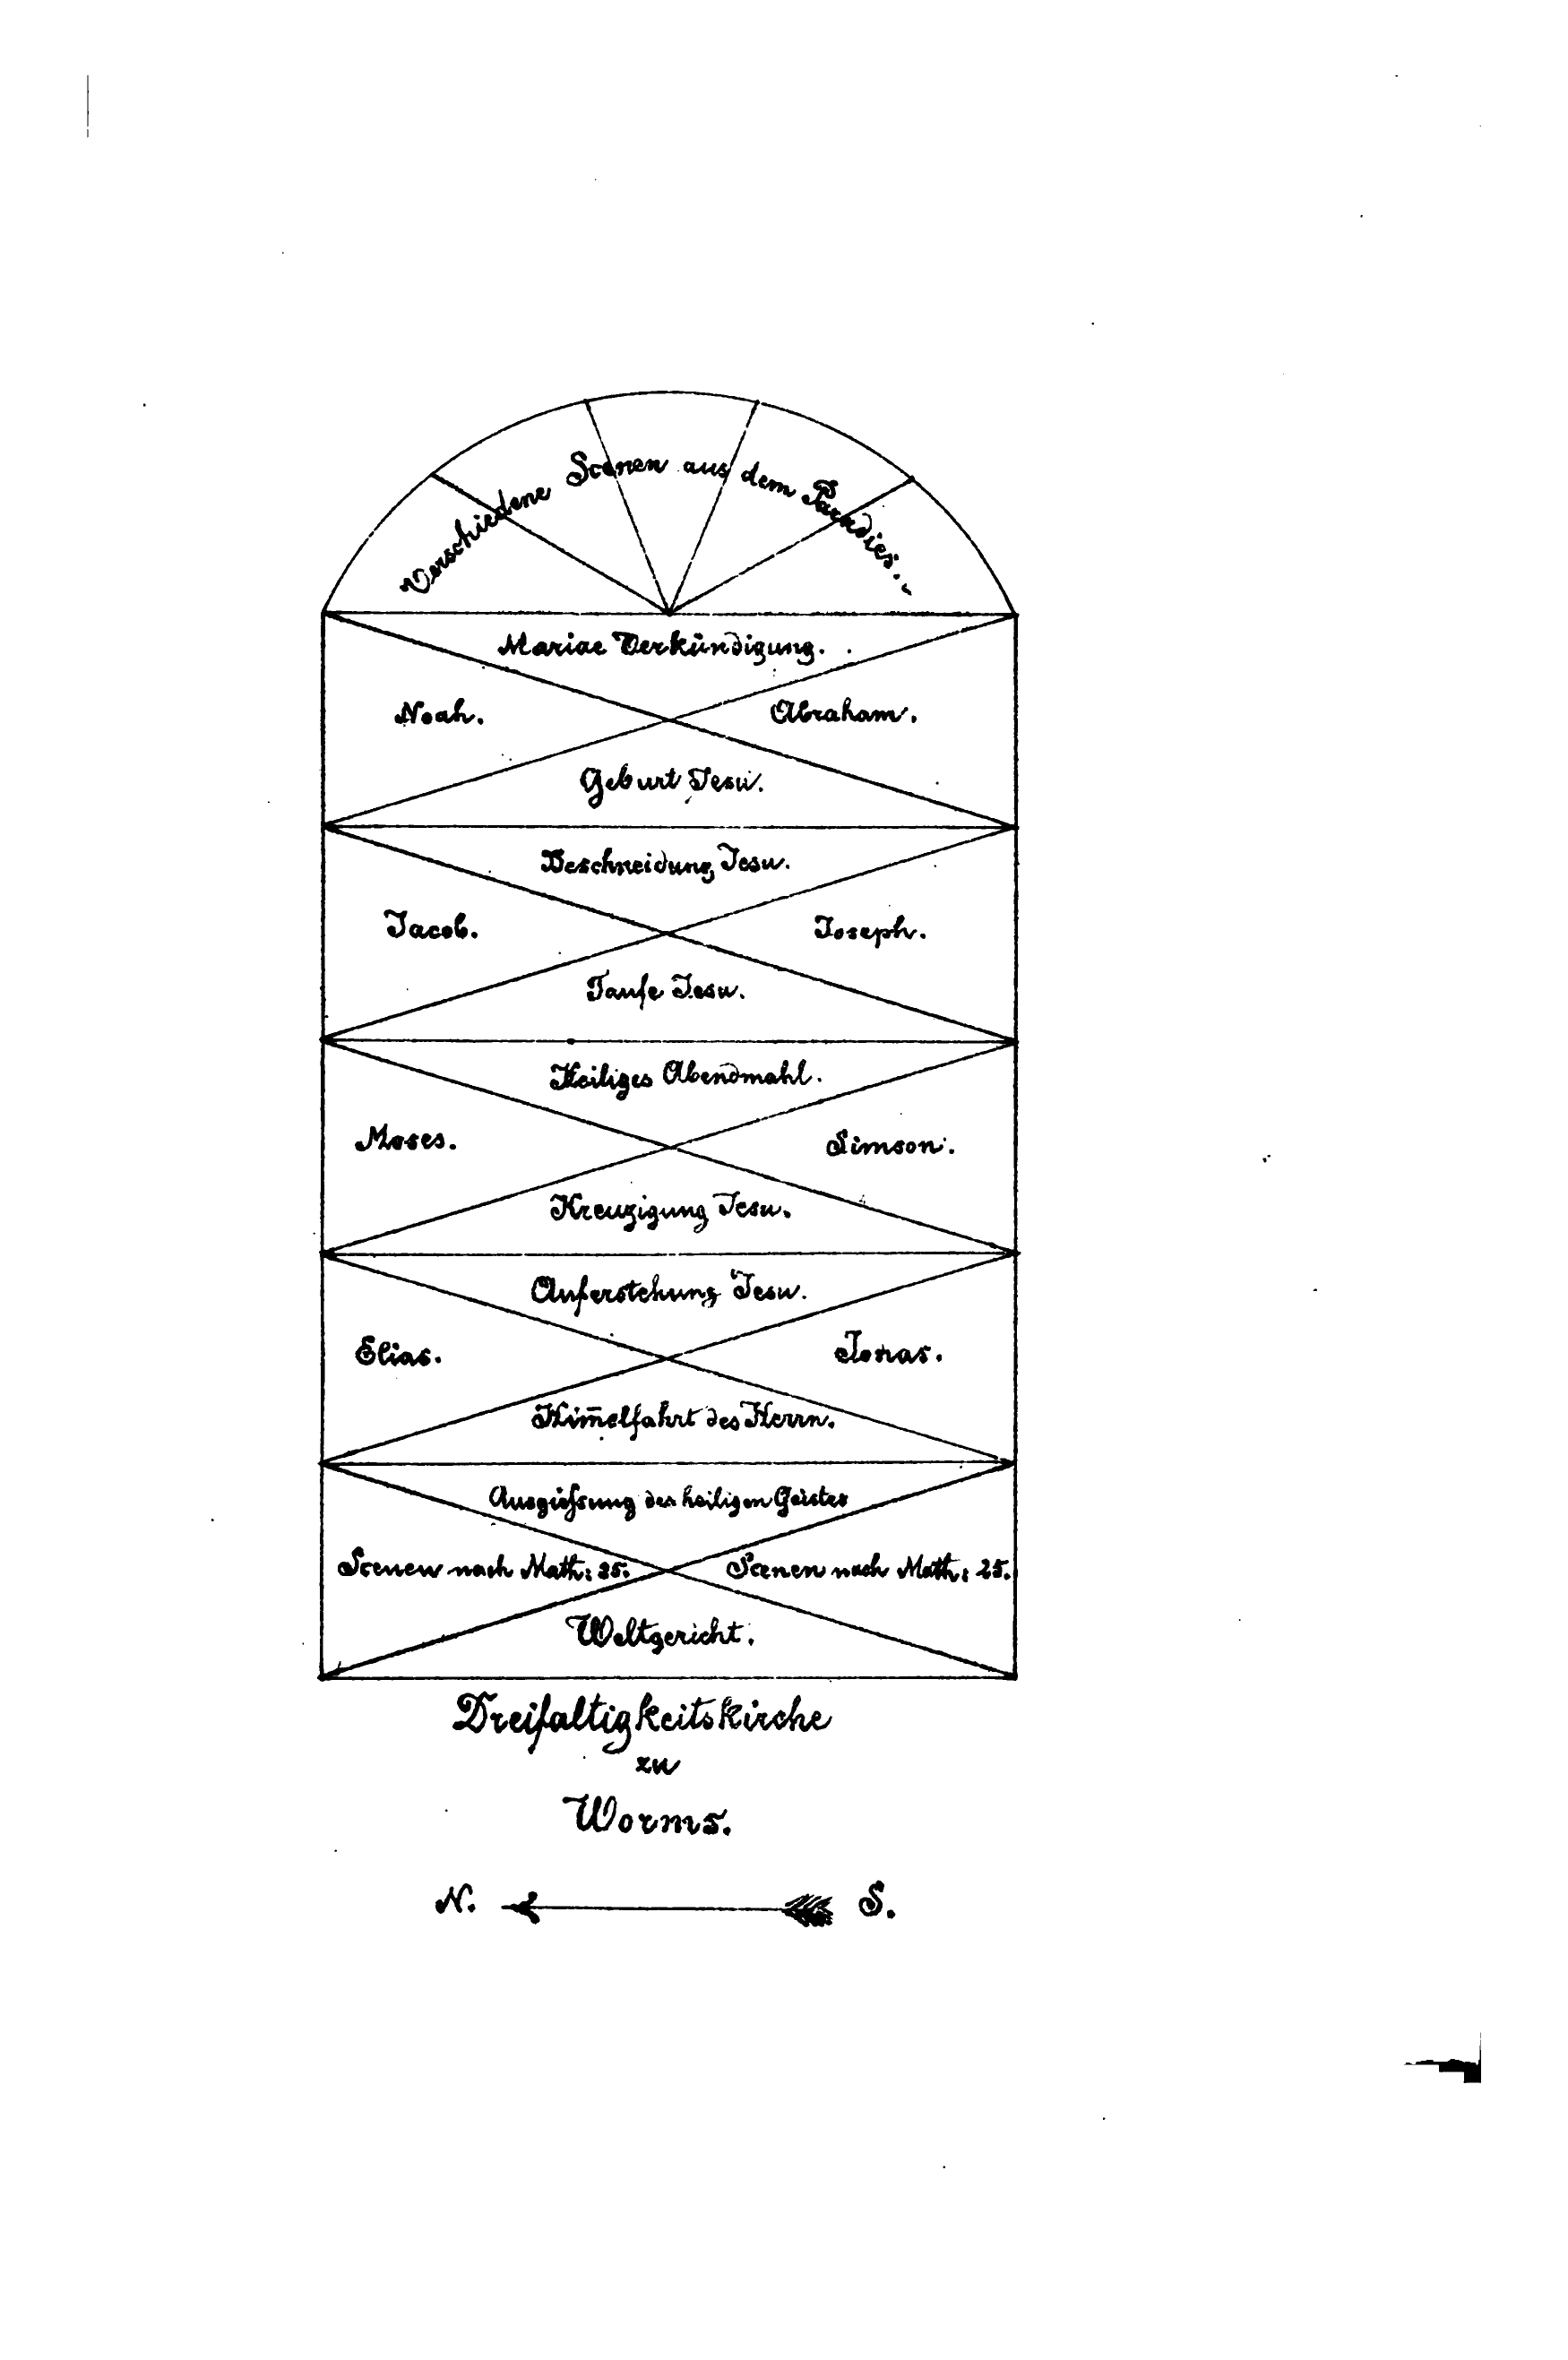 Verschiedene Scenen aus dem Paradies.
Mariae Verkündigung.
Noah. Abraham.
Geburt Jesu.
Beschneidung Jesu.
Jacob. Joseph.
Taufe Jesu.
Heiliges Abendmahl.
Moses. Simson.
Kreuzigung Jesu.
Auferstehung Jesu.
Elias. Jonas.
Him̅elfahrt des Herrn.
Ausgießung des heiligen Geistes
Scenen nach Math: 25. Scenen nach Math: 25.
Weltgericht.
Dreifaltigkeitskirche
zu
Worms.
N. S.